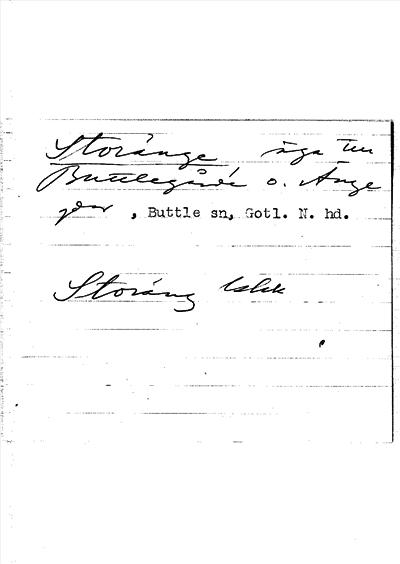 Storänge äga till
Buttlegårde o. Änge
gdar , Buttle sn, Gotl. N. hd.
Storäng